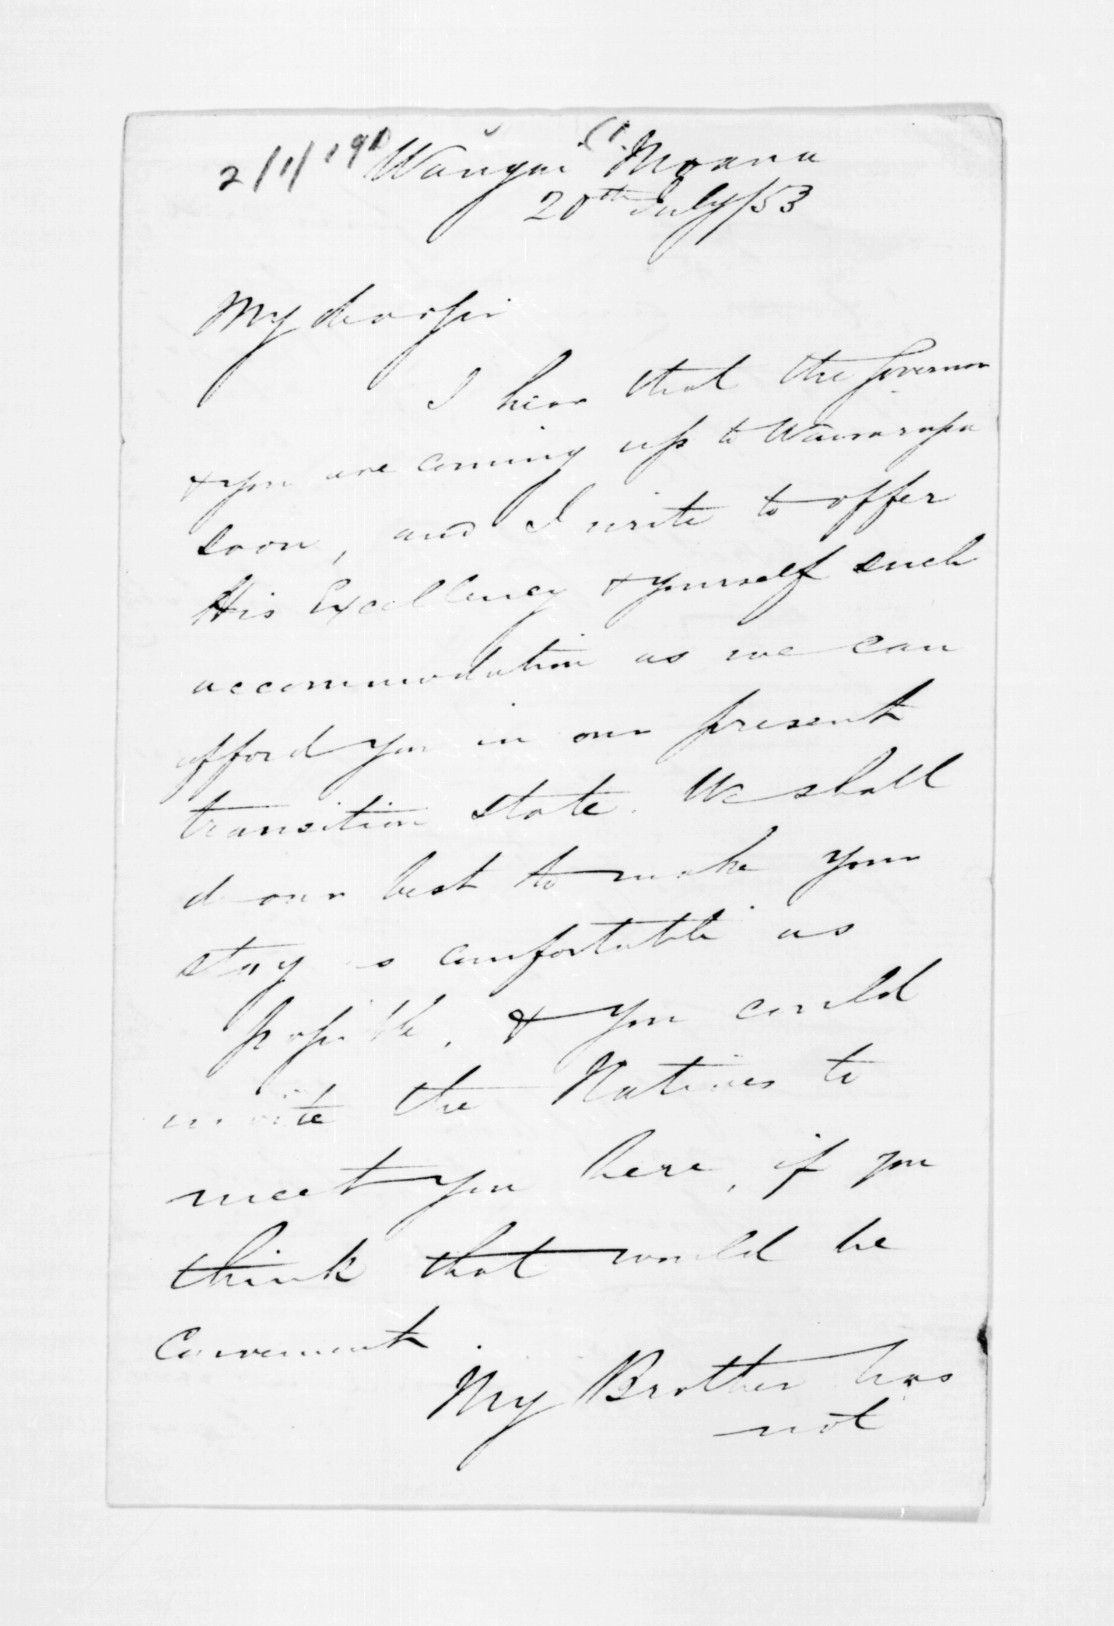 Wangai Moana
20th July/53
My dear Sir
I hear that the Governor
& you are coming up to Wairarapa
soon, and I write to offer
His Excellency & yourself such
accommodation as we can
afford you in our present
transition state. We shall
do our best to make your
stay as comfortable as
possible, & you could
invite the Natives to
meet you here, if you
think that would be
convenient.
My Brother has
not